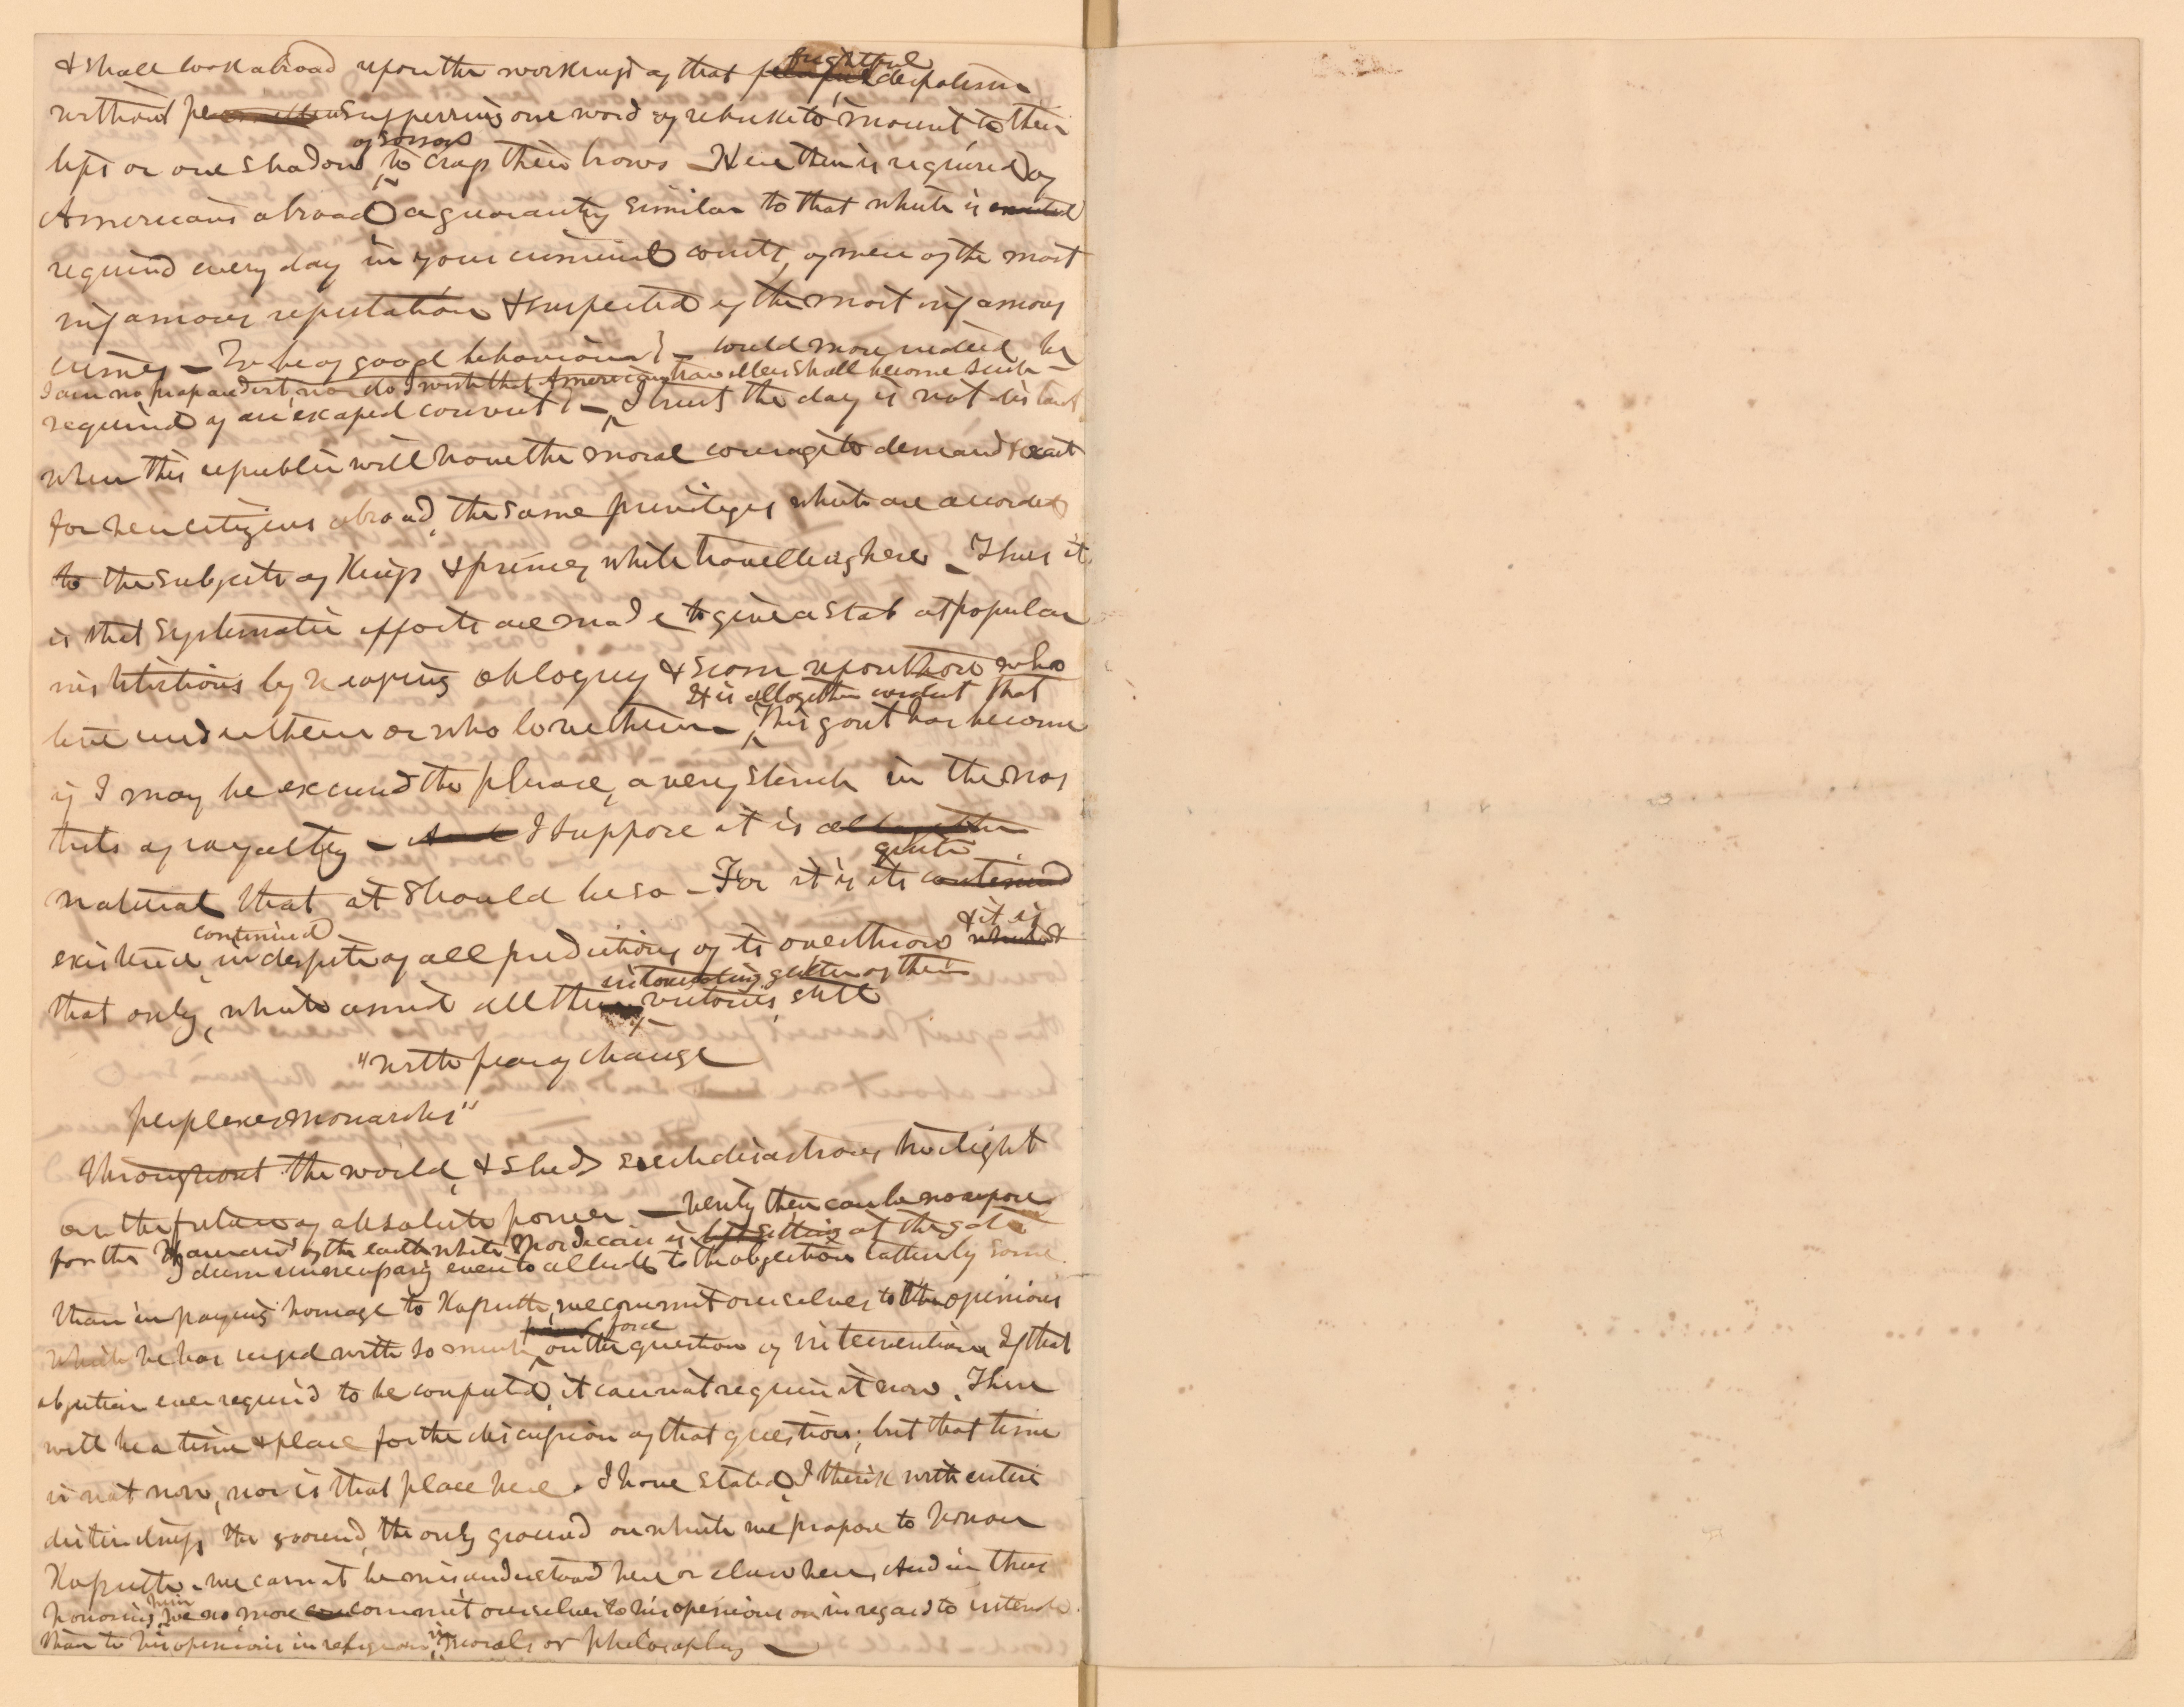 & shall look abroad upon the workings of that frightful despotism
without suffering one word of rebuke to mount to their
lips or one shadow of sorrow to cross their brows - Here then is required of
Americans abroad a guaranty similar to that which is exacted
required every day in your criminal courts, of men of the most
infamous reputation & suspected of the most infamous
crimes - To be of good behaviour! - Could more indeed be
I am no propagandist, nor do I wish that American travellers shall become such -
required of an escaped convict! - I trust the day is not distant
when this republic will have the moral courage to demand & exact
for her citizens abroad, the same privileges which are accorded
to the subjects of Kings & princes while travelling here - Thus it
is that systematic efforts are made to give a stab at popular
institutions by heaping obloquy & scorn upon those who
It is altogether evident that
live under them or who love them - This govt has become
if I may be excused the phrase, a very stench in the nos
trils of royalty - And I suppose it is altogether
quite
natural that it should be so - For it is its continued
continued & it is
existence, in despite of all predictions of its overthrow which
intoxicating glitter of their
that only, which amid all their victories, still
"with fear of change
perplexes monarchs"
throughout the world, & sheds such disastrous twilight
on the future of absolute power - Verily there can be no repose
for the Hamans of the earth while Mordecai is left sitting at the gate
I deem unnecessary even to allude to the objection latterly some
than in paying homage to Kossuth, we commit ourselves to the opinions
force
which he has urged with so much on the question of intervention. If that
objection ever required to be confuted, it cannot require it now. There
will be a time & place for the discussion of that question; but that time
is not now, nor is that place here. I have stated, I think with entire
distinctness the ground, the only ground on which we propose to honour
Kossuth. We cannot be misunderstood here or elsewhere. And in thus
him
honoring we no more commit ourselves to his opinions in regard to
than to his opinions in religion, in morals or philosophy -